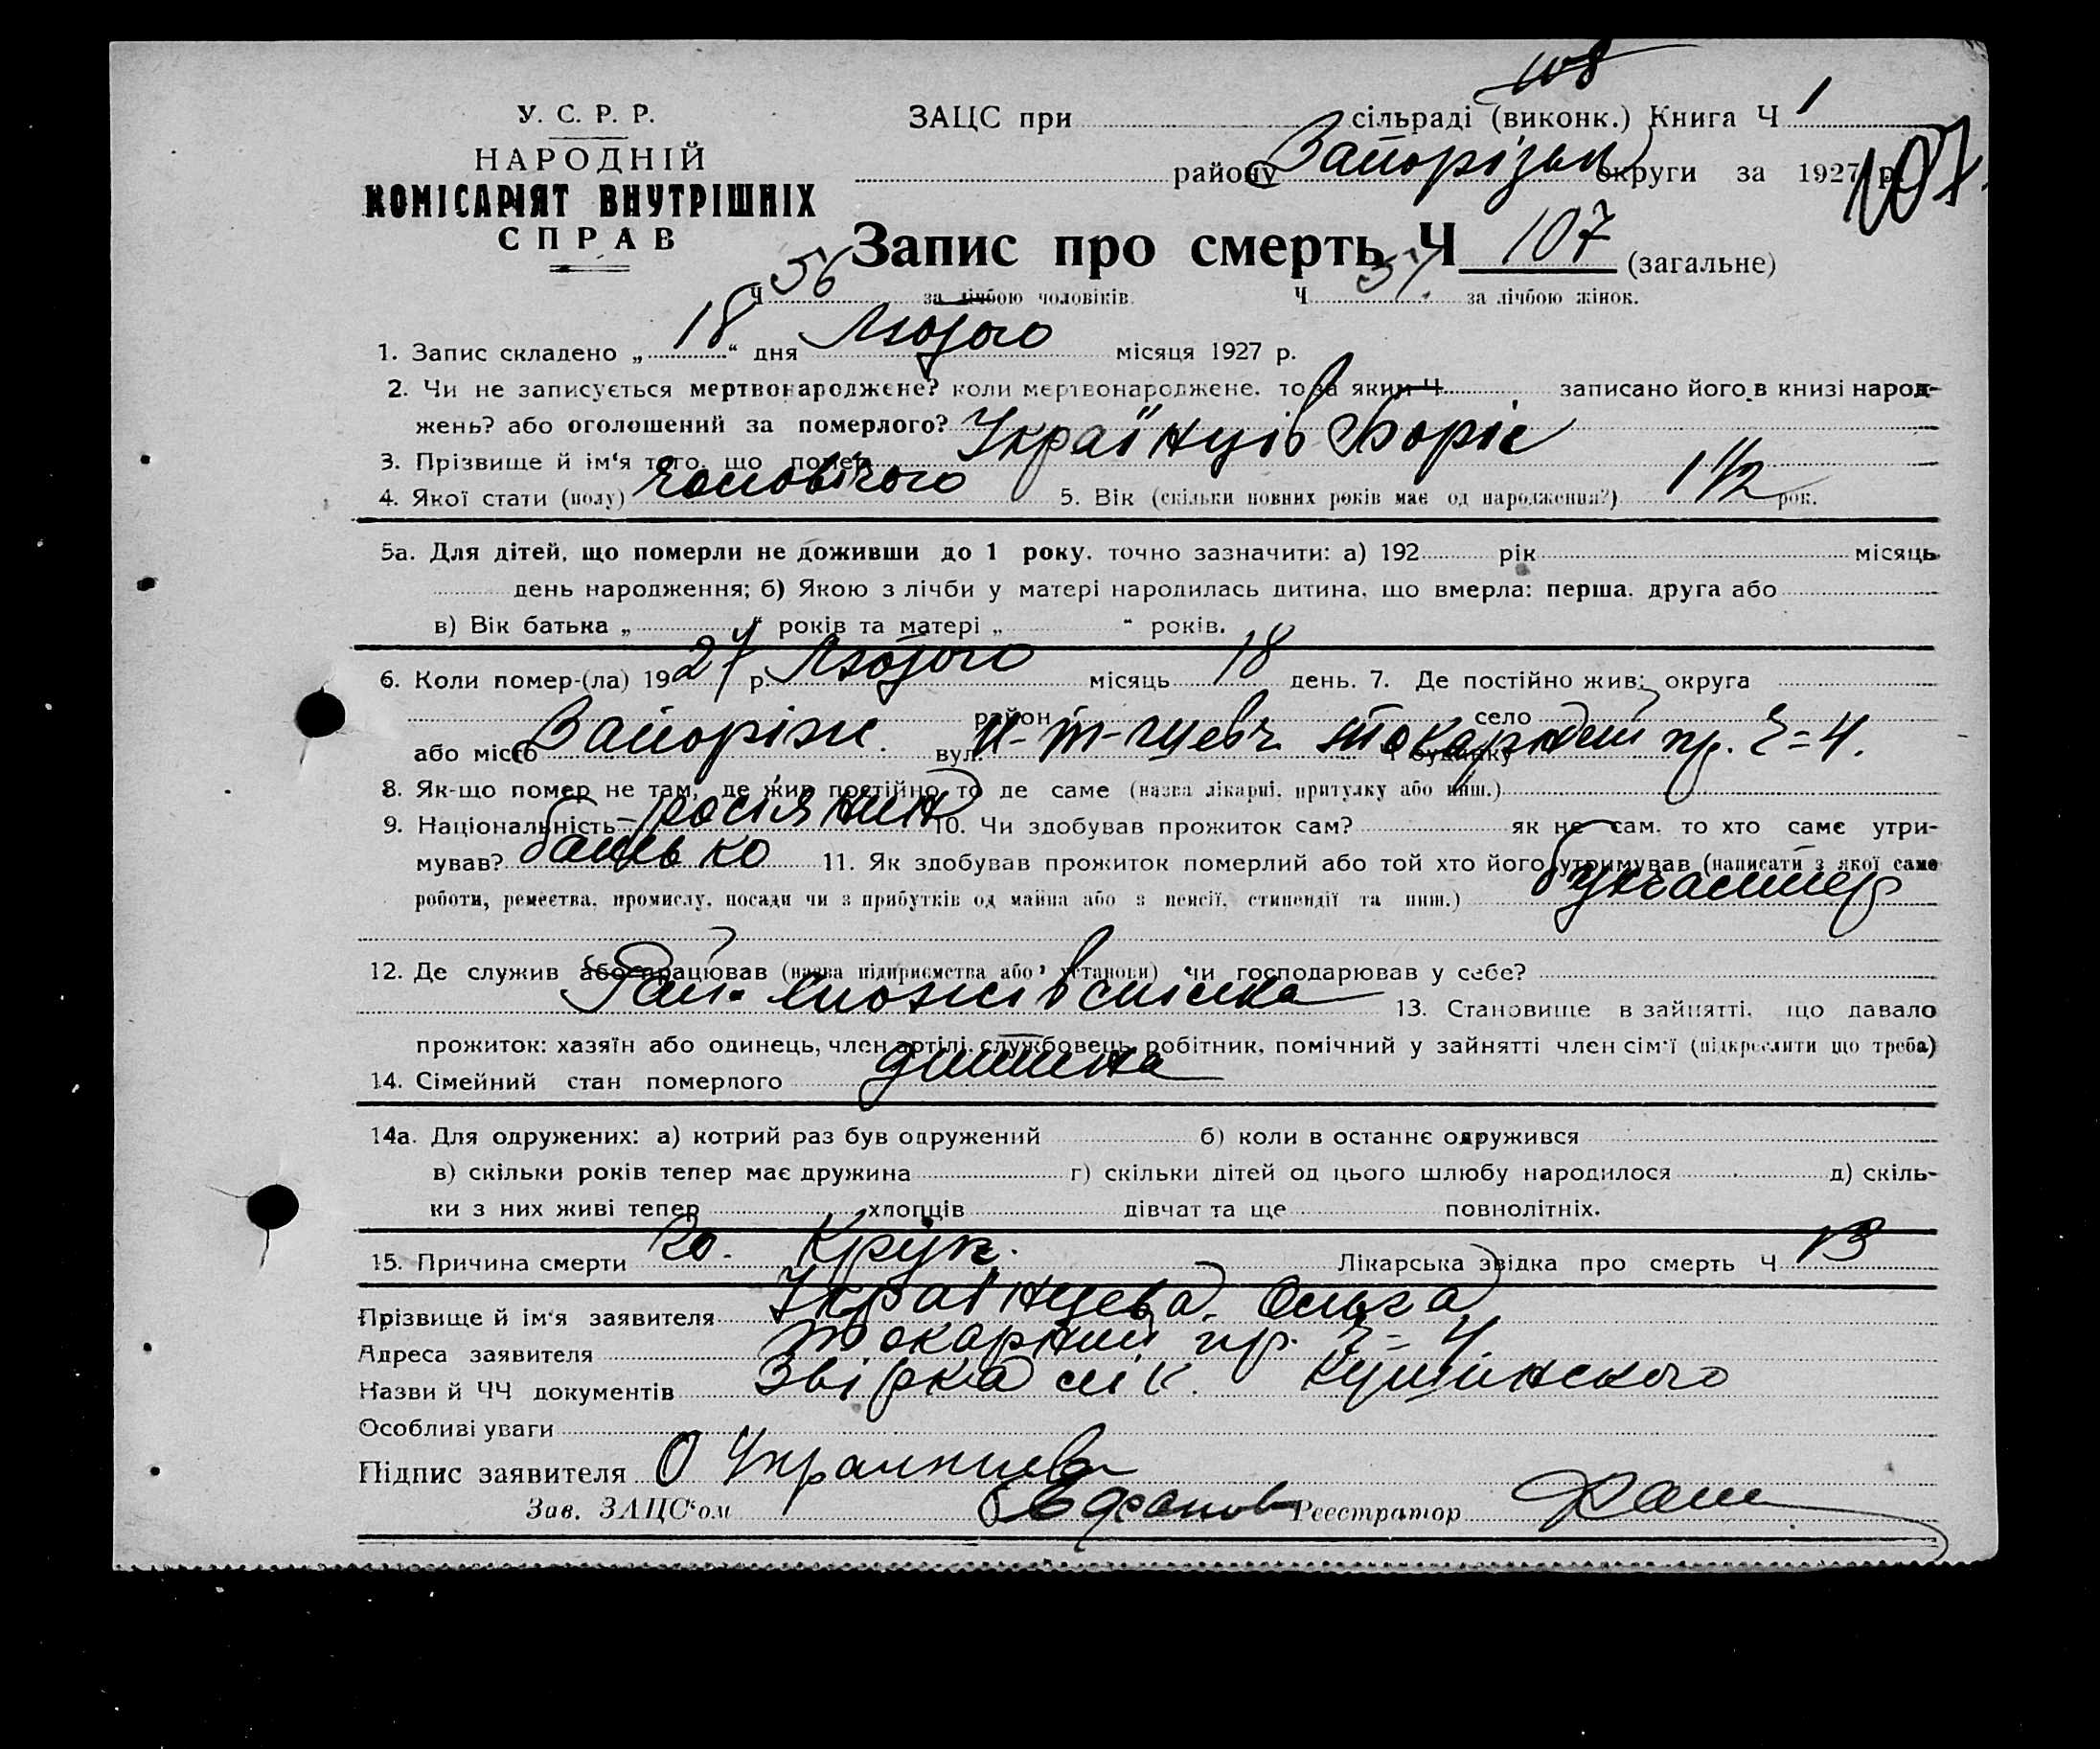 108
У. С. Р. Р.
НАРОДНІЙ
КОМІСАРІЯТ ВНУТРІШНІХ
СПРАВ
ЗАЦС при сільраді (виконк.) Книга Ч 1
району Запорізьк округи за 1927 р. 107
Запис про смерть Ч 107 (загальне)
Ч 56 за лічбою чоловіків. Ч 51 за лічбою жінок.
1. Запис складено „ 18 “ дня Лютого місяця 1927 р.
2. Чи не записується мертвонароджене? коли мертвонароджене, то за яким Ч записано його в книзі народ-
жень? або оголошений за померлого?
3. Прізвище й ім'я того, що помер Українців Боріс
4. Якої стати (полу) чоловічого 5. Вік (скільки повних років має од народження?) 1 1/2 рок.
5а. Для дітей, що померли не доживши до 1 року, точно зазначити: а) 192 рік місяць
день народження; б) Якою з лічби у матері народилась дитина, що вмерла: перша, друга або
в) Вік батька „ “ років та матері „ “ років.
6. Коли помер-(ла) 1927 р. Лютого місяць 18 день. 7. Де постійно жив: округа
район село
або місто Запоріж. вул. Токарний пр. Ч=4. Ч будинку
8. Як-що помер не там, де жив постійно, то де саме (назва лікарні, притулку або инш.)
9. Національність росіянин 10. Чи здобував прожиток сам? як не сам, то хто саме утри-
мував? батько 11. Як здобував прожиток померлий або той хто його утримував (написати з якої саме
роботи, ремества, промислу, посади чи з прибутків од майна або з пенсії, стипендії та инш.) бухгалтер
12. Де служив або працював (назва підприємства або установи) чи господарював у себе?
Рай. споживспілка 13. Становище в зайнятті, що давало
прожиток: хазяїн або одинець, член артілі, службовець, робітник, помічний у зайнятті член сім'ї (підкреслити що треба)
14. Сімейний стан померлого дитина
14а. Для одружених: а) котрий раз був одружений б) коли в останнє одружився
в) скільки років тепер має дружина г) скільки дітей од цього шлюбу народилося д) скіль-
ки з них живі тепер хлопців дівчат та ще повнолітніх.
15. Причина смерти Круп. Лікарська звідка про смерть Ч 13
Прізвище й ім'я заявителя Українцева Ольга
Адреса заявителя Токарний пр. Ч=4
Назви й ЧЧ документів Звірка лік.
Особливі уваги
Підпис заявителя О Украинцева
Зав. ЗАЦС‘ом Реєстратор